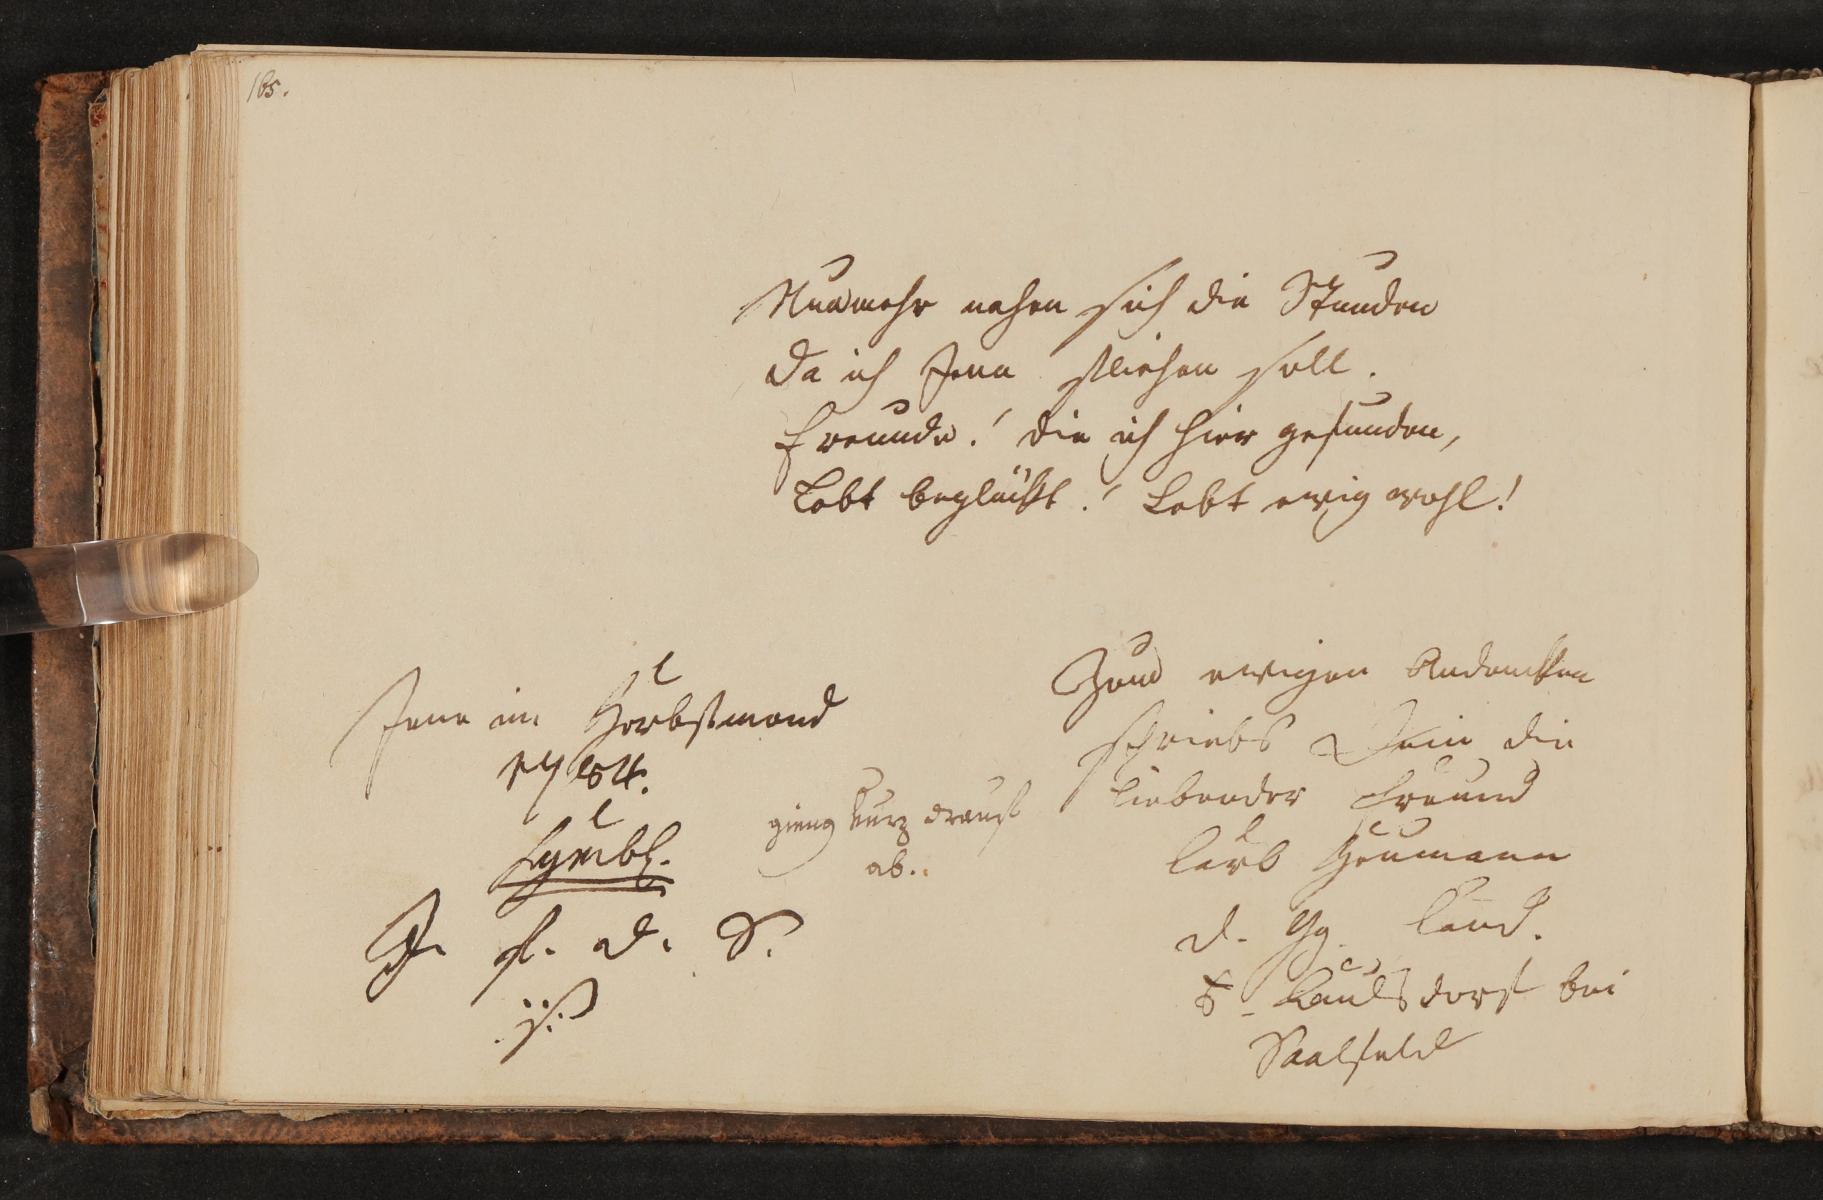 165.
Nunmehr nahen sich die Stunden
da ich Jena fliehen soll.
Freunde! die ich hier gefunden,
Lebt beglückt! Lebt ewig wohl!
Jena im Herbstmond
Symbl.
J. f. d. S.
gieng kurz drauf
ab..
Zum ewigen Andencken
schriebs Dein Dich
liebender Freund
Heumann
d. Gg. Cand.
Kaulsdorf bei
Saalfeld